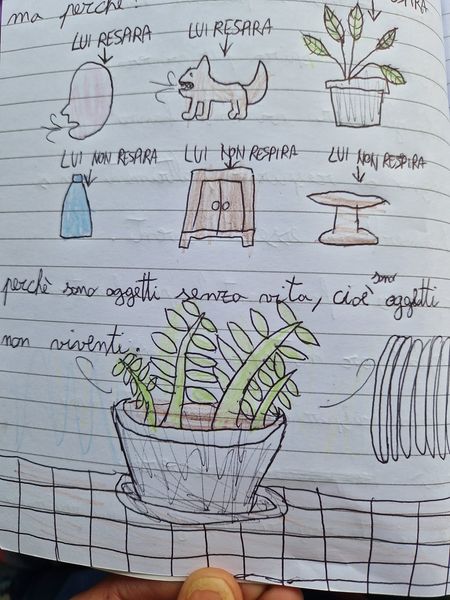 ma perchè
LUI RESPIRA LUI RESPIRA
LUI NON RESPIRA LUI NON RESPIRA LUI NON RESPIRA
perchè sono oggetti senza vita, cioè sono oggetti
non viventi.